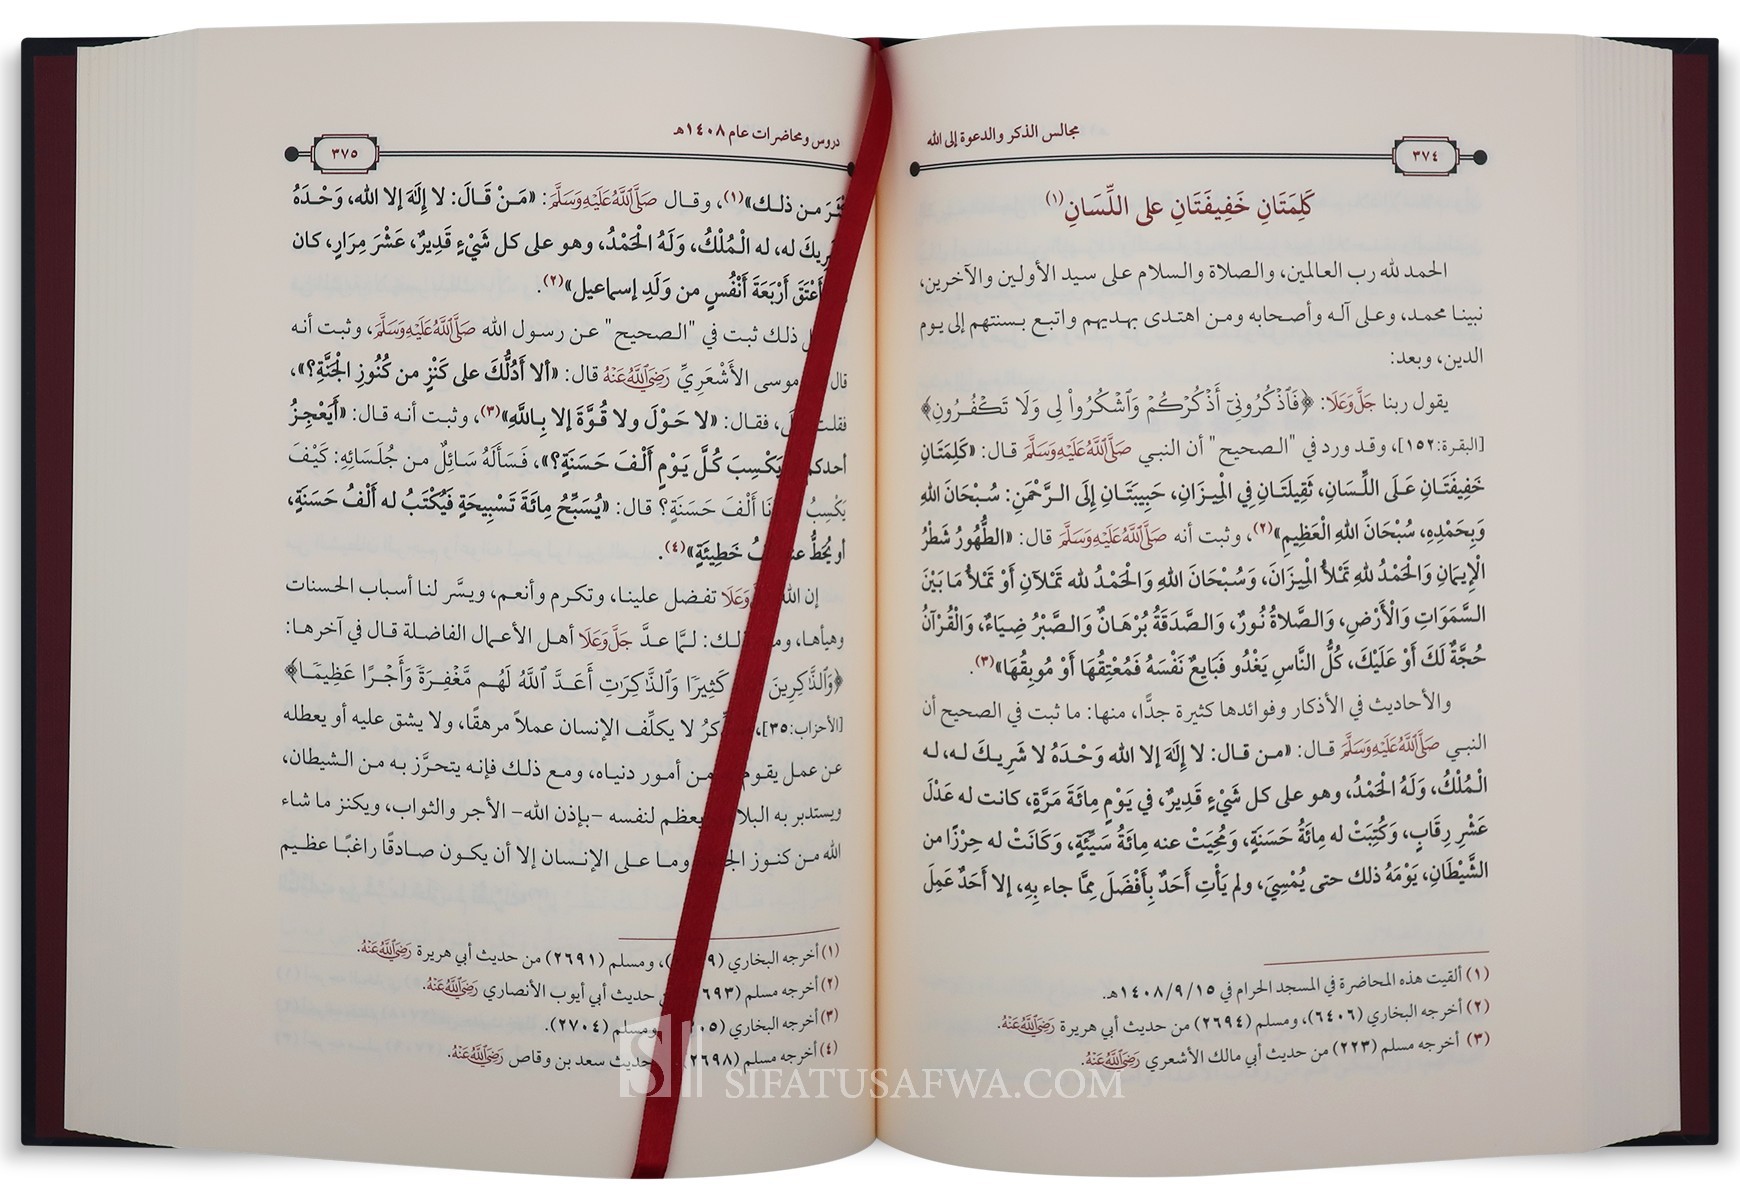 مجالس الذكر والدعوة إلى الله
٣٧٤
كَلِمَتَانِ خَفِيفَتَانِ على اللِّسَانِ(١)
الحمد لله رب العالمين، والصلاة والسلام على سيد الأولين والآخرين،
نبينا محمد، وعلى آله وأصحابه ومن اهتدى بهديهم واتبع بسنتهم إلى يوم
الدين، وبعد:
يقول ربنا جَلَّ وَعَلَا: ﴿فَٱذۡكُرُونِيٓ أَذۡكُرۡكُمۡ وَٱشۡكُرُواْ لِي وَلَا تَكۡفُرُونِ﴾
[البقرة:١٥٢]، وقد ورد في "الصحيح" أن النبي صَلَّى ٱللَّهُ عَلَيْهِ وَسَلَّمَ قال: «كَلِمَتَانِ
خَفِيفَتَانِ عَلَى اللِّسَانِ، ثَقِيلَتَانِ فِي الْمِيزَانِ، حَبِيبَتَانِ إِلَى الرَّحْمَنِ: سُبْحَانَ اللهِ
وَبِحَمْدِهِ، سُبْحَانَ اللهِ الْعَظِيمِ»(٢)، وثبت أنه صَلَّى ٱللَّهُ عَلَيْهِ وَسَلَّمَ قال: «الطُّهُورُ شَطْرُ
الْإِيمَانِ وَالْحَمْدُ للهِ تَمْلأُ الْمِيزَانَ، وَسُبْحَانَ اللهِ وَالْحَمْدُ لله تَمْلآنِ أَوْ تَمْلأُ مَا بَيْنَ
السَّمَوَاتِ وَالْأَرْضِ، وَالصَّلاةُ نُورٌ، وَالصَّدَقَةُ بُرْهَانٌ وَالصَّبْرُ ضِيَاءٌ، وَالْقُرْآنُ
حُجَّةٌ لَكَ أَوْ عَلَيْكَ، كُلُّ النَّاسِ يَغْدُو فَبَايِعٌ نَفْسَهُ فَمُعْتِقُهَا أَوْ مُوبِقُهَا»(٣).
والأحاديث في الأذكار وفوائدها كثيرة جدًّا، منها: ما ثبت في الصحيح أن
النبي صَلَّى ٱللَّهُ عَلَيْهِ وَسَلَّمَ قال: «من قال: لا إِلَهَ إلا الله وَحْدَهُ لا شَرِيكَ له، له
الْمُلْكُ، وَلَهُ الْحَمْدُ، وهو على كل شَيْءٍ قَدِيرٌ، في يَوْمٍ مِائَةَ مَرَّةٍ، كانت له عَدْلَ
عَشْرِ رِقَابٍ، وَكُتِبَتْ له مِائَةُ حَسَنَةٍ، وَمُحِيَتْ عنه مِائَةُ سَيِّئَةٍ، وَكَانَتْ له حِرْزًا من
الشَّيْطَانِ، يَوْمَهُ ذلك حتى يُمْسِيَ، ولم يَأْتِ أَحَدٌ بِأَفْضَلَ مِمَّا جاء بِهِ، إلا أَحَدٌ عَمِلَ
(١) ألقيت هذه المحاضرة في المسجد الحرام في ١٤٠٨/٩/١٥هـ.
(٢) أخرجه البخاري (٦٤٠٦)، ومسلم (٢٦٩٤) من حديث أبي هريرة رَضِيَ ٱللَّهُ عَنْهُ.
(٣) أخرجه مسلم (٢٢٣) من حديث أبي مالك الأشعري رَضِيَ ٱللَّهُ عَنْهُ.
دروس ومحاضرات عام ١٤٠٨هـ
٣٧٥
من ذلك»(١)، وقال صَلَّى ٱللَّهُ عَلَيْهِ وَسَلَّمَ: «مَنْ قَالَ: لا إِلَهَ إلا الله، وَحْدَهُ
له، له الْمُلْكُ، وَلَهُ الْحَمْدُ، وهو على كل شَيْءٍ قَدِيرٌ، عَشْرَ مِرَارٍ، كان
أَعْتَقَ أَرْبَعَةَ أَنْفُسٍ من وَلَدِ إسماعيل»(٢).
ذلك ثبت في "الصحيح" عن رسول الله صَلَّى ٱللَّهُ عَلَيْهِ وَسَلَّمَ، وثبت أنه
قال موسى الأَشْعَرِيِّ رَضِيَ ٱللَّهُ عَنْهُ قال: «ألا أَدُلُّكَ على كَنْزٍ من كُنُوزِ الْجَنَّةِ؟»،
فقلت فقال: «لا حَوْلَ ولا قُوَّةَ إلا بِاللَّهِ»(٣)، وثبت أنه قال: «أَيَعْجِزُ
يَكْسِبَ كُلَّ يَوْمٍ أَلْفَ حَسَنَةٍ؟»، فَسَأَلَهُ سَائِلٌ من جُلَسَائِهِ: كَيْفَ
يَكْسِبُ أَلْفَ حَسَنَةٍ؟ قال: «يُسَبِّحُ مِائَةَ تَسْبِيحَةٍ فَيُكْتَبُ له أَلْفُ حَسَنَةٍ،
أو يُحَطُّ خَطِيئَةٍ»(٤).
إن الله تفضل علينا، وتكرم وأنعم، ويسَّر لنا أسباب الحسنات
وهيأها، لمَّا عدَّ جَلَّ وَعَلَا أهل الأعمال الفاضلة قال في آخرها:
﴿وَٱلذَّٰكِرِينَ كَثِيرٗا وَٱلذَّٰكِرَٰتِ أَعَدَّ ٱللَّهُ لَهُم مَّغۡفِرَةٗ وَأَجۡرًا عَظِيمٗا﴾
[الأحزاب:٣٥]، لا يكلِّف الإنسان عملاً مرهقًا، ولا يشق عليه أو يعطله
عن عمل يقوم من أمور دنياه، ومع ذلك فإنه يتحرَّز به من الشيطان،
ويستدبر به يعظم لنفسه -بإذن الله- الأجر والثواب، ويكنز ما شاء
الله من كنوز وما على الإنسان إلا أن يكون صادقًا راغبًا عظيم
(١) أخرجه البخاري ومسلم (٢٦٩١) من حديث أبي هريرة رَضِيَ ٱللَّهُ عَنْهُ.
(٢) أخرجه مسلم حديث أبي أيوب الأنصاري رَضِيَ ٱللَّهُ عَنْهُ.
(٣) أخرجه البخاري ومسلم (٢٧٠٤).
(٤) أخرجه مسلم (٢٦٩٨) حديث سعد بن وقاص رَضِيَ ٱللَّهُ عَنْهُ.
SIFATUSAFWA.COM